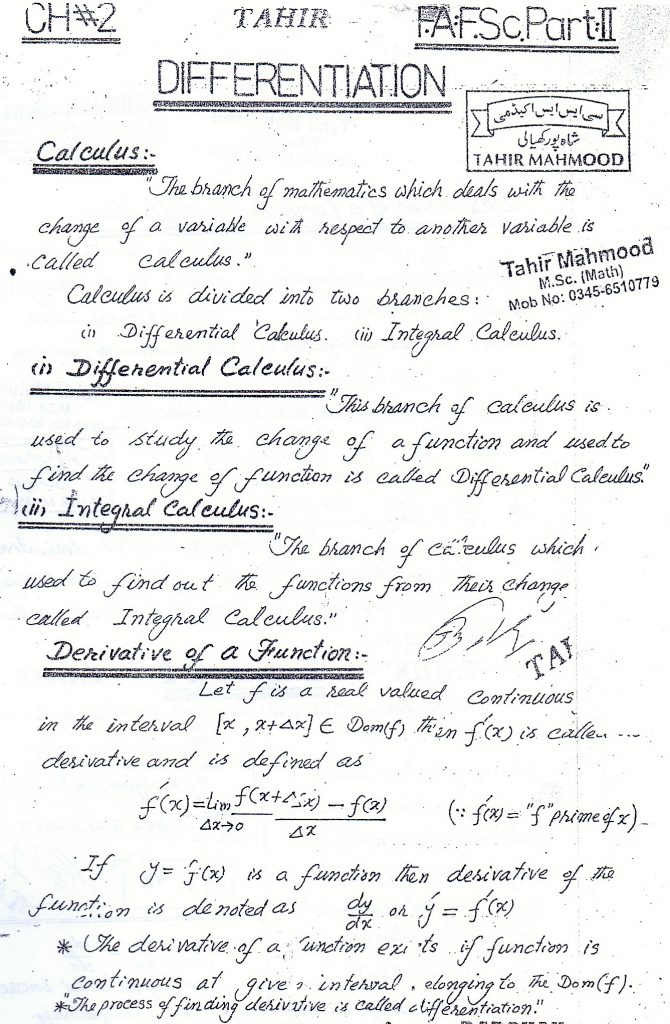 CH#2 TAHIR F.A:F.Sc.Part:II
DIFFERENTIATION
سی ایس ایس اکیڈمی
شاہ پور کھیالی
TAHIR MAHMOOD
Calculus:-
"The branch of mathematics which deals with the
change of a variable with respect to another variable is
called calculus."
Tahir Mahmood
M.Sc. (Math)
Mob No: 0345-6510779
Calculus is divided into two branches:
(i) Differential Calculus. (ii) Integral Calculus.
(i) Differential Calculus:-
"This branch of calculus is
used to study the change of a function and used to
find the change of function is called Differential Calculus."
(ii) Integral Calculus:-
"The branch of calculus which
used to find out the functions from their change
called Integral Calculus."
TAH
Derivative of a Function:-
Let f is a real valued continuous
in the interval [x, x+Δx] ∈ Dom(f) then f'(x) is called
derivative and is defined as
f'(x) = Lim Δx→0 f(x+Δx) − f(x) / Δx (∵ f'(x) = "f" prime of x)
If y = f(x) is a function then derivative of the
function is denoted as dy/dx or y' = f'(x)
* The derivative of a function exists if function is
continuous at given interval, belonging to the Dom(f).
*"The process of finding derivative is called differentiation."